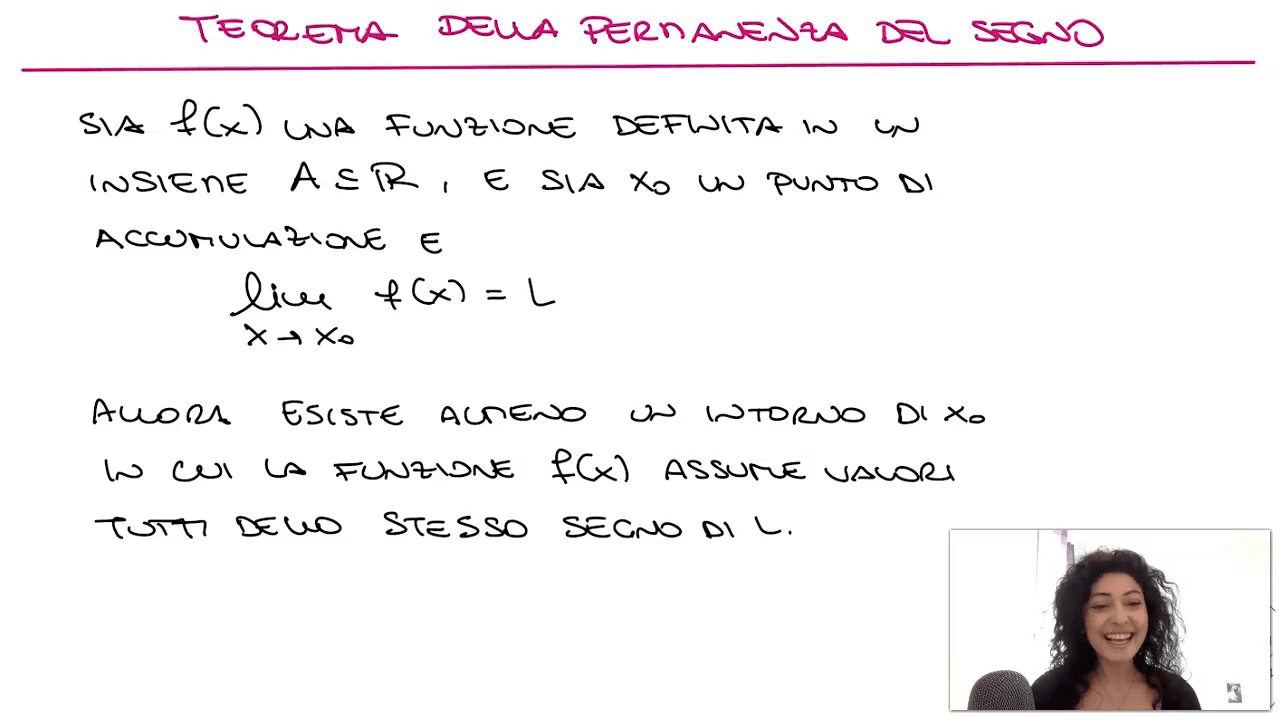 TEOREMA DELLA PERMANENZA DEL SEGNO
SIA f(x) UNA FUNZIONE DEFINITA IN UN
INSIEME A ⊆ ℝ, E SIA x₀ UN PUNTO DI
ACCUMULAZIONE E
lim f(x) = L
x → x₀
ALLORA ESISTE ALMENO UN INTORNO DI x₀
IN CUI LA FUNZIONE f(x) ASSUME VALORI
TUTTI DELLO STESSO SEGNO DI L.